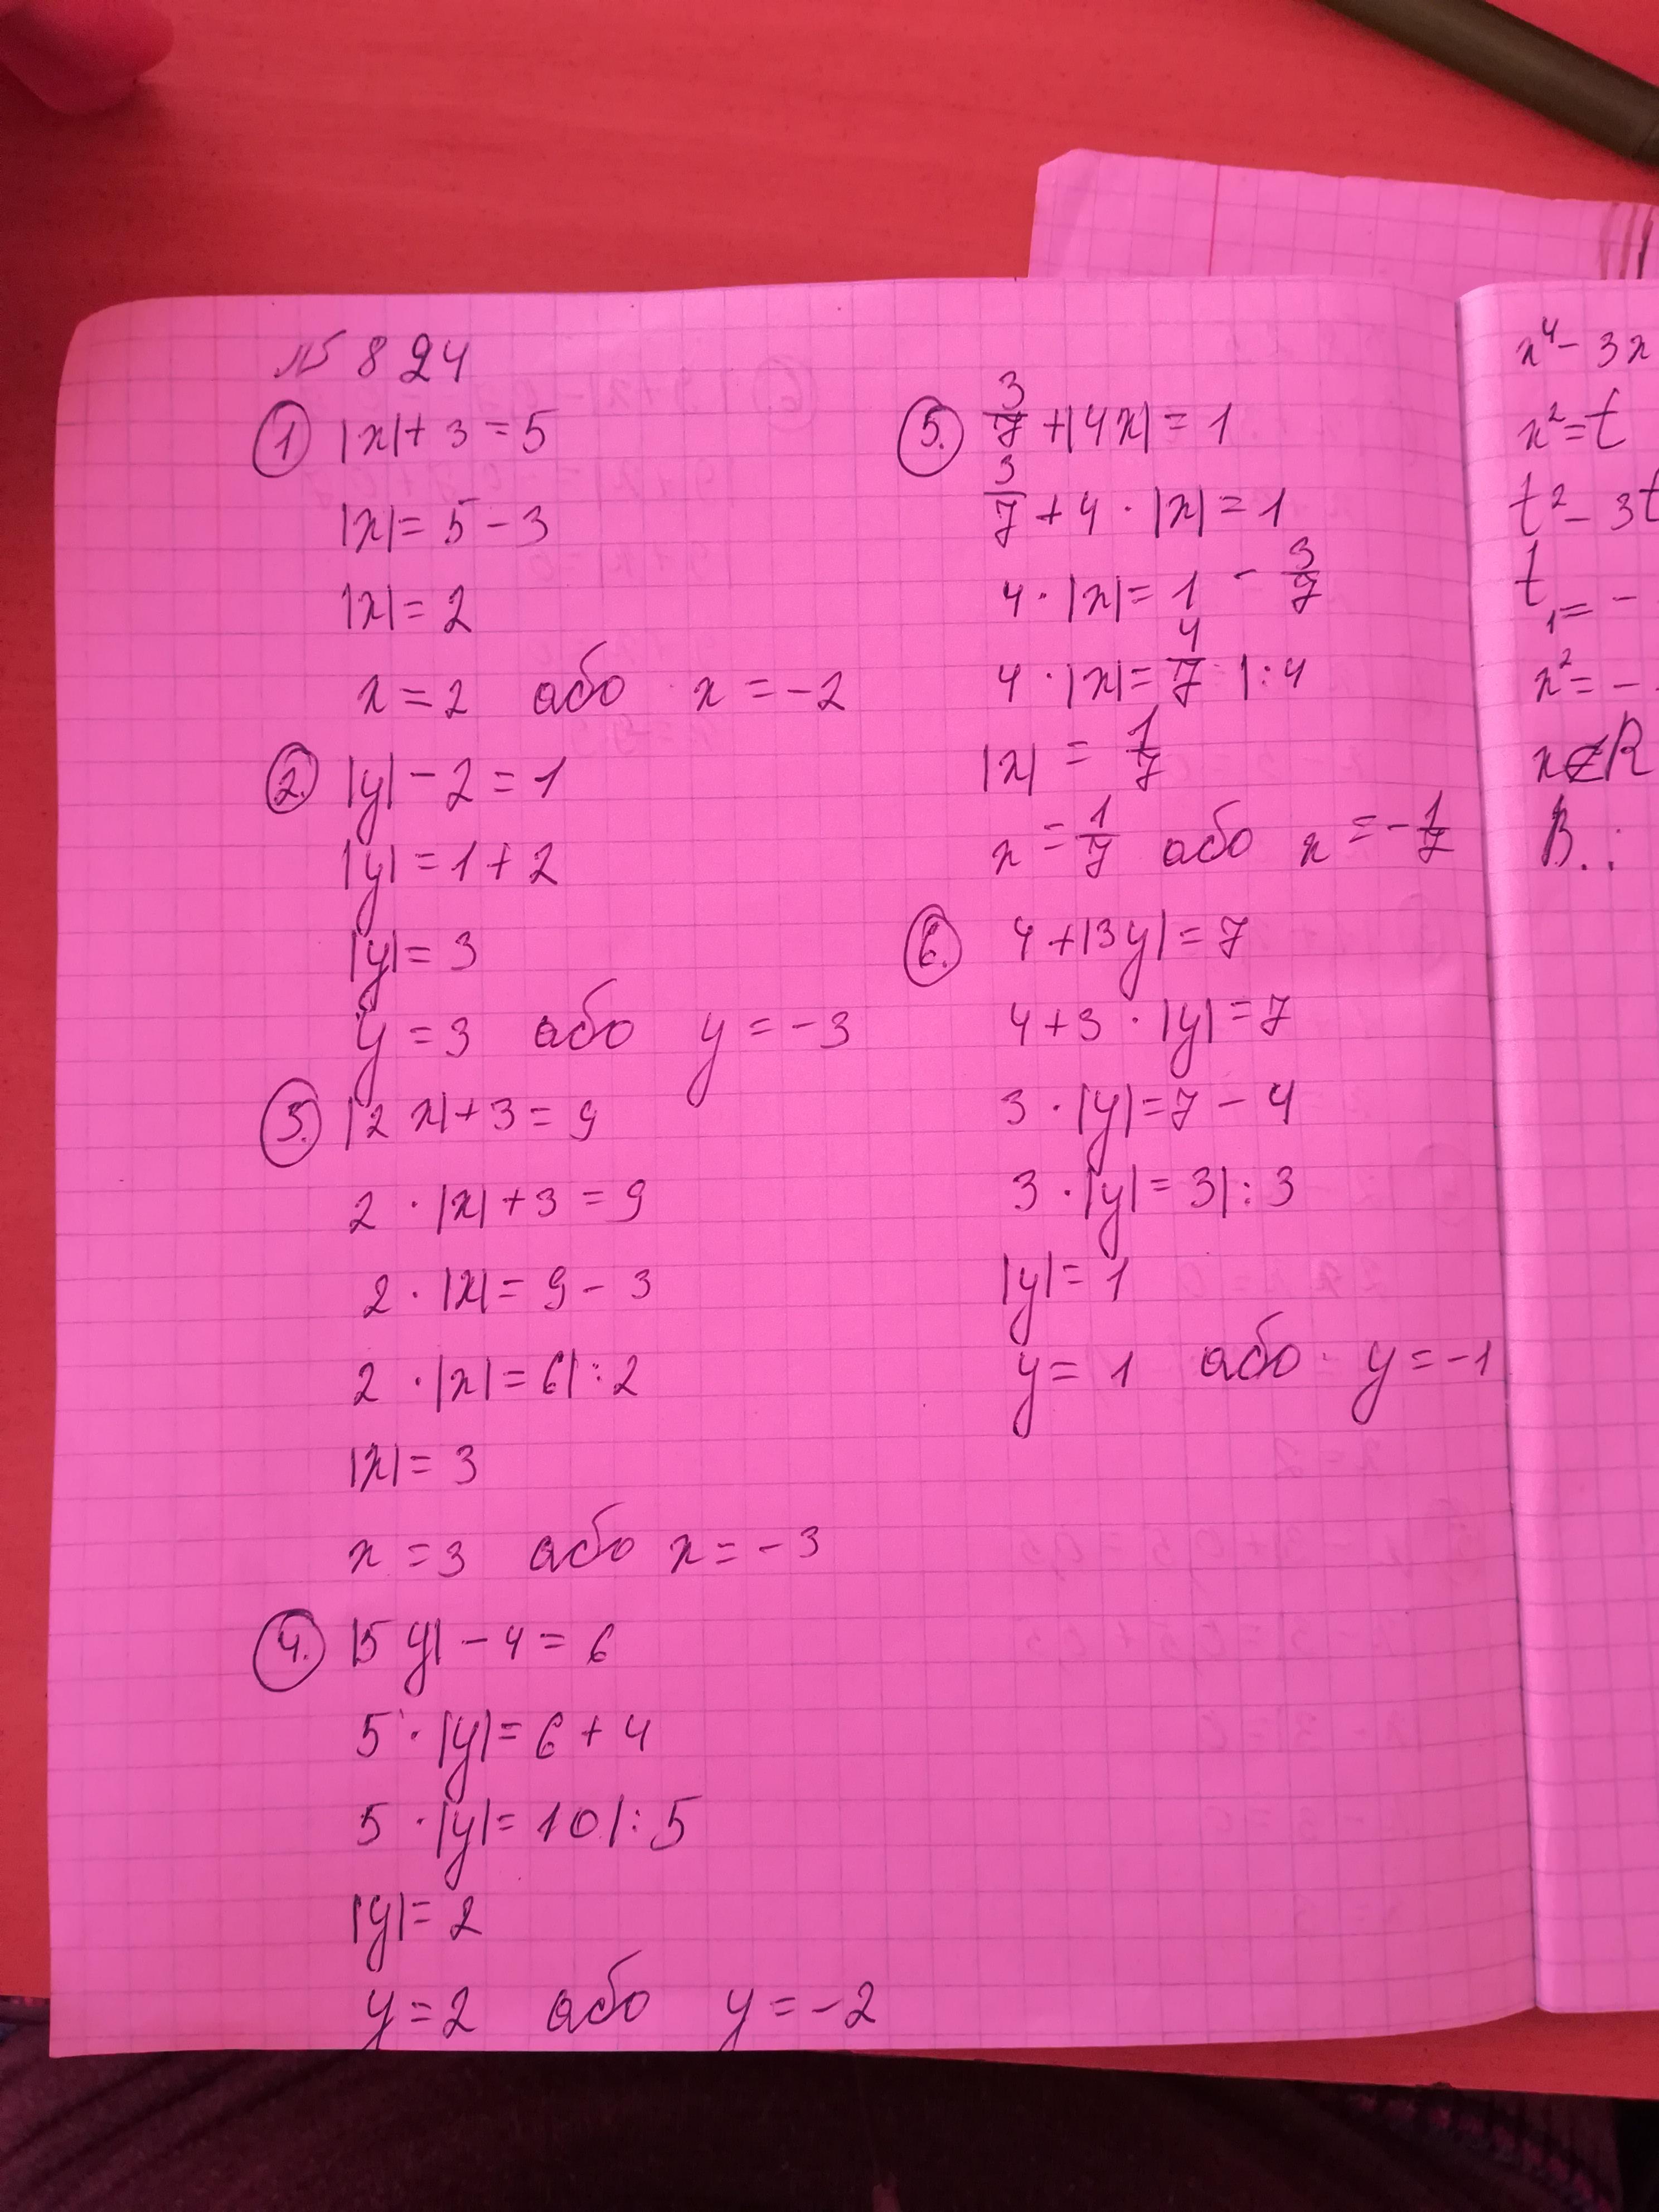 № 824
1 |x| + 3 = 5
|x| = 5 - 3
|x| = 2
x = 2 або x = -2
2. |y| - 2 = 1
|y| = 1 + 2
|y| = 3
y = 3 або y = -3
3. |2x| + 3 = 9
2 · |x| + 3 = 9
2 · |x| = 9 - 3
2 · |x| = 6 | : 2
|x| = 3
x = 3 або x = -3
4. |5y| - 4 = 6
5 · |y| = 6 + 4
5 · |y| = 10 | : 5
|y| = 2
y = 2 або y = -2
5. 3/7 + |4x| = 1
3/7 + 4 · |x| = 1
4 · |x| = 1 - 3/7
4 · |x| = 4/7 | : 4
|x| = 1/7
x = 1/7 або x = -1/7
6. 4 + |3y| = 7
4 + 3 · |y| = 7
3 · |y| = 7 - 4
3 · |y| = 3 | : 3
|y| = 1
y = 1 або y = -1
x⁴ - 3x
x² = t
t² - 3t
t₁ = -
x² = -
x ∉ R
В.: